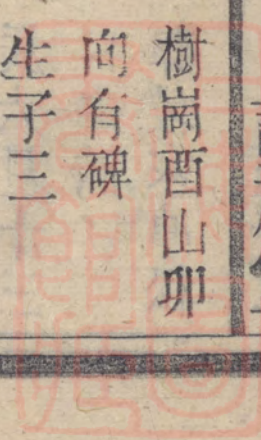 樹崗酉山卯
向有碑
生子三